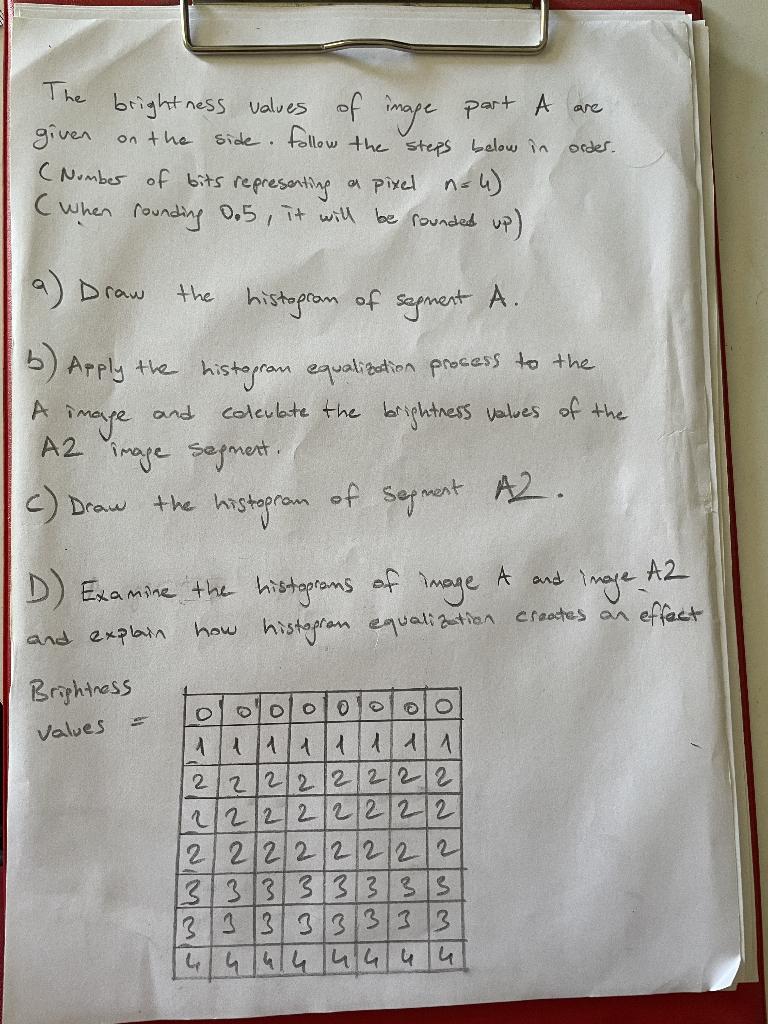 The brightness values of image part A are
given on the side. follow the steps below in order.
(Number of bits representing a pixel n=4)
(when rounding 0.5, it will be rounded up)
a) Draw the histogram of segment A.
b) Apply the histogram equalization process to the
A image and calculate the brightness values of the
A2 image segment.
C) Draw the histogram of segment A2.
D) Examine the histograms of image A and image A2
and explain how histogram equalization creates an effect
Brightness
values =
0 0 0 0 0 0 0 0
1 1 1 1 1 1 1 1
2 2 2 2 2 2 2 2
2 2 2 2 2 2 2 2
2 2 2 2 2 2 2 2
3 3 3 3 3 3 3 3
3 3 3 3 3 3 3 3
4 4 4 4 4 4 4 4